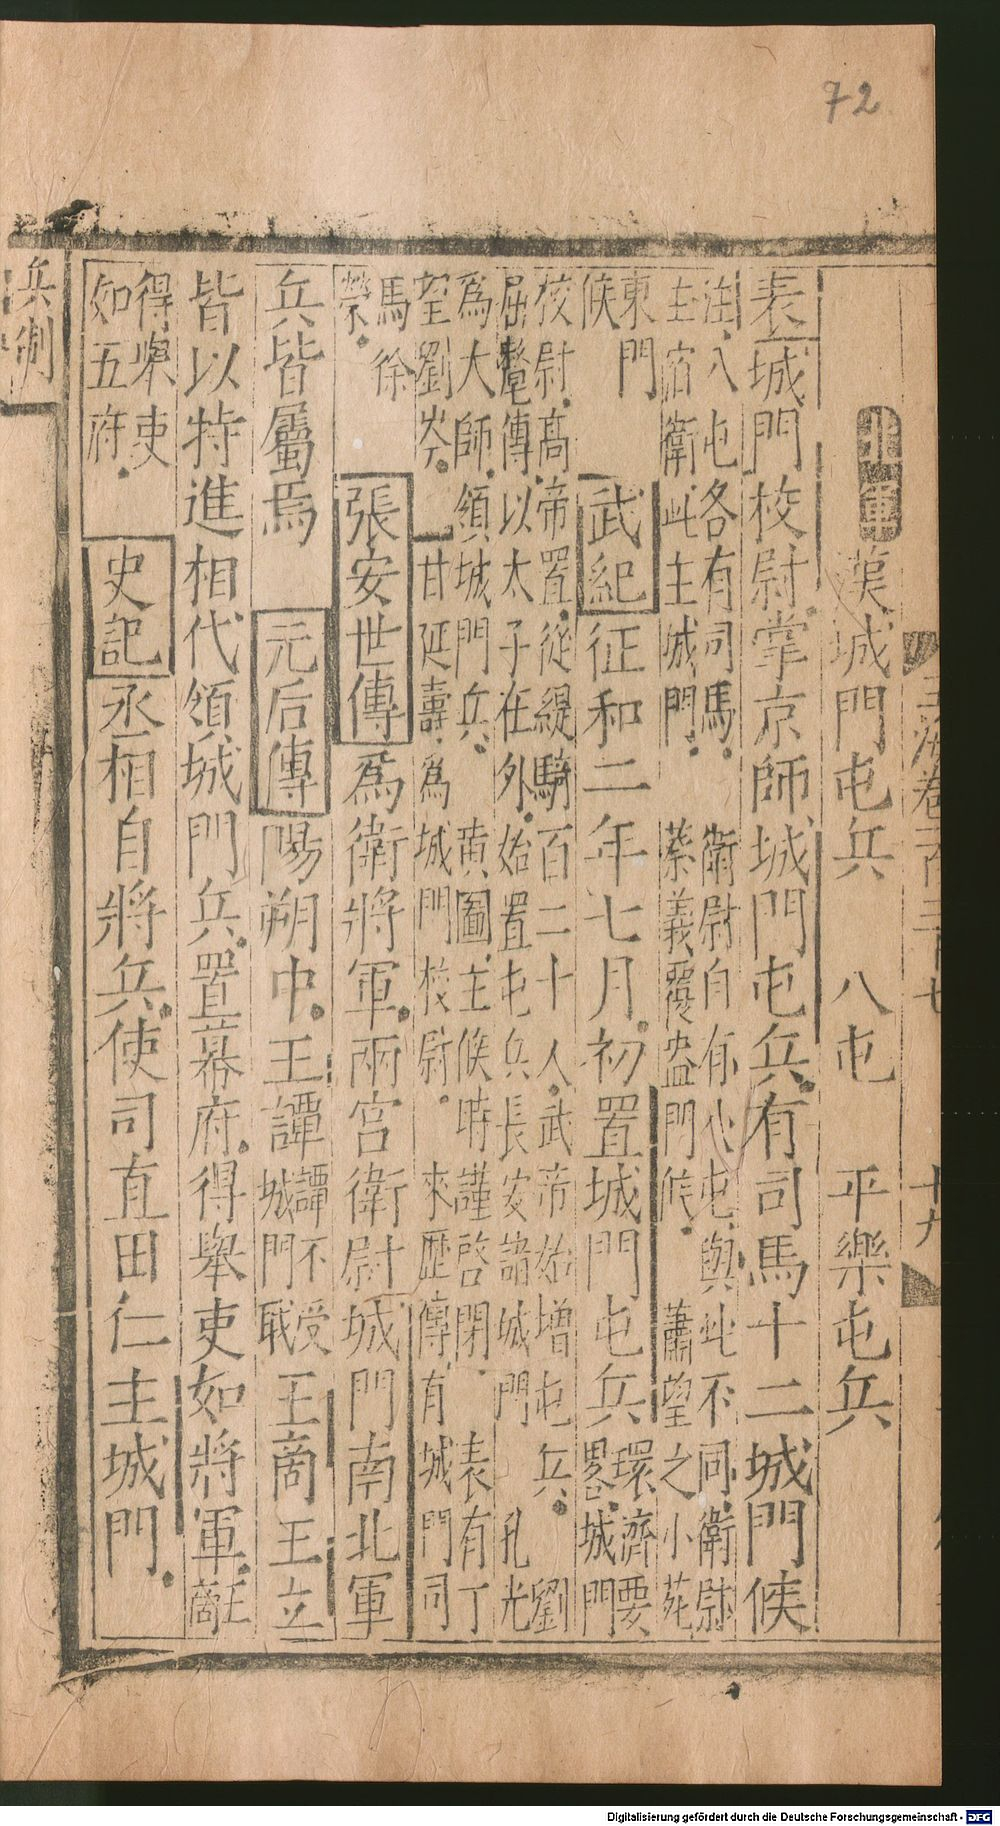 72
玉海卷一百三十七
十九
北軍 漢城門屯兵 八屯 平樂屯兵
表城門校尉掌京師城門屯兵有司馬十二城門候
注八屯各有司馬 衛尉自有八屯與此不同衛尉
主宿衛此主城門 蔡義覆盎門候 蕭望之小苑
東門
候
武紀征和二年七月初置城門屯兵
環濟要
畧城門
校尉高帝置從緹騎百二十人武帝始增屯兵 劉
屈氂傳以太子在外始置屯兵長安諸城門 孔光
為大師領城門兵 黄圖主候時謹啓閉 表有丁
望劉岑 甘延壽為城門校尉 來歷傳有城門司
馬徐
榮
張安世傳為衛將軍兩宮衛尉城門南北軍
兵皆屬焉 元后傳陽朔中王譚
譚不受
城門職
王商王立
皆以特進相代領城門兵置幕府得舉吏如將軍
王
商
得舉吏
如五府
史記丞相自將兵使司直田仁主城門
兵制
Digitalisierung gefördert durch die Deutsche Forschungsgemeinschaft - DFG